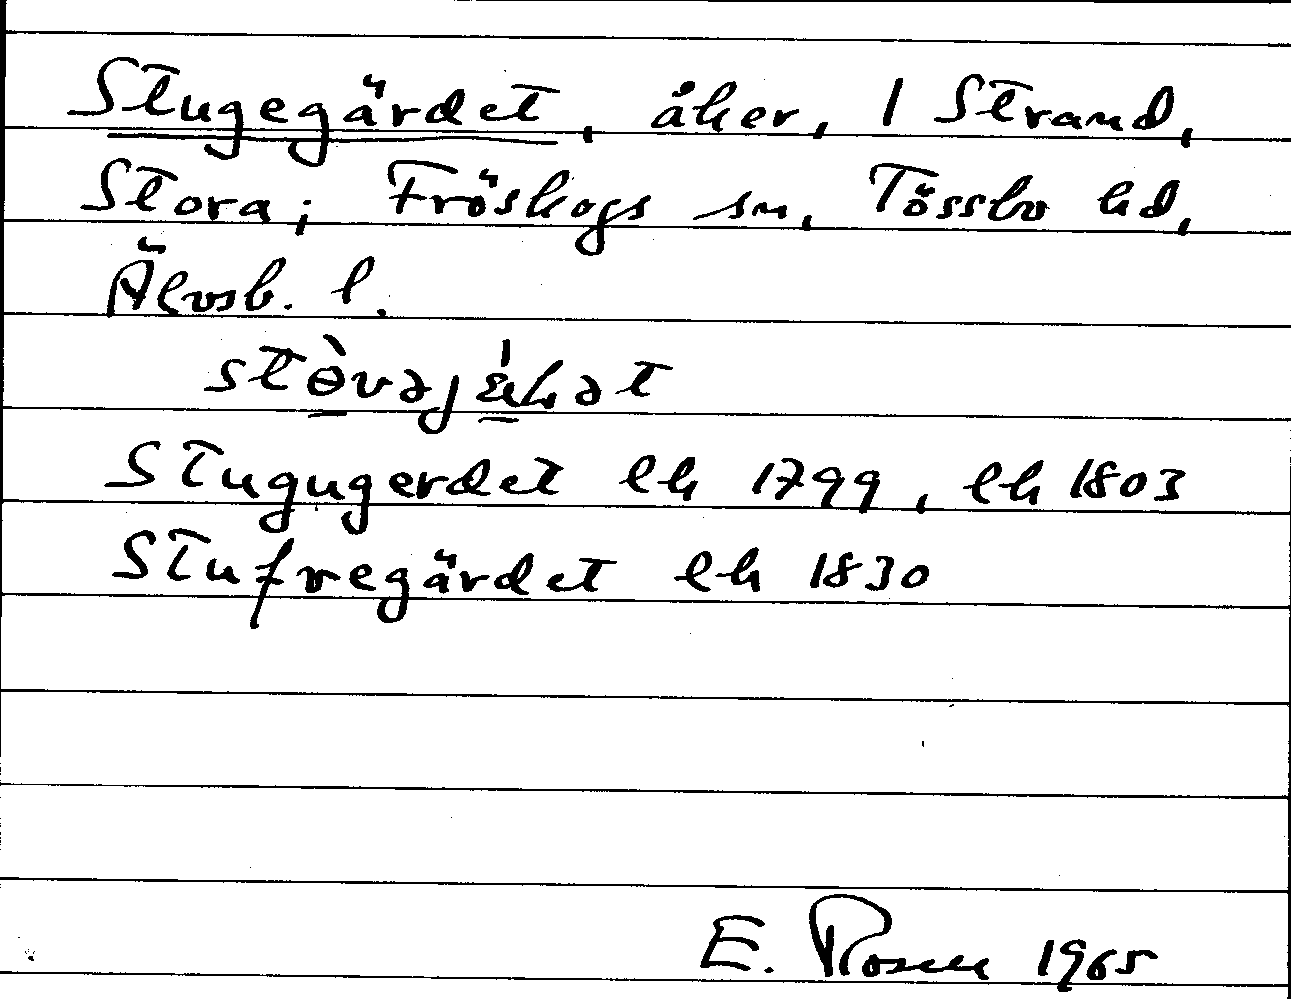 Stugegärdet, åker, 1 Strand,
Stora; Fröskogs sn, Tössbo hd,
Älvsb. l.
Stugugerdet lh 1799, lh 1803
Stufvegärdet lh 1830
E. Rosen 1965